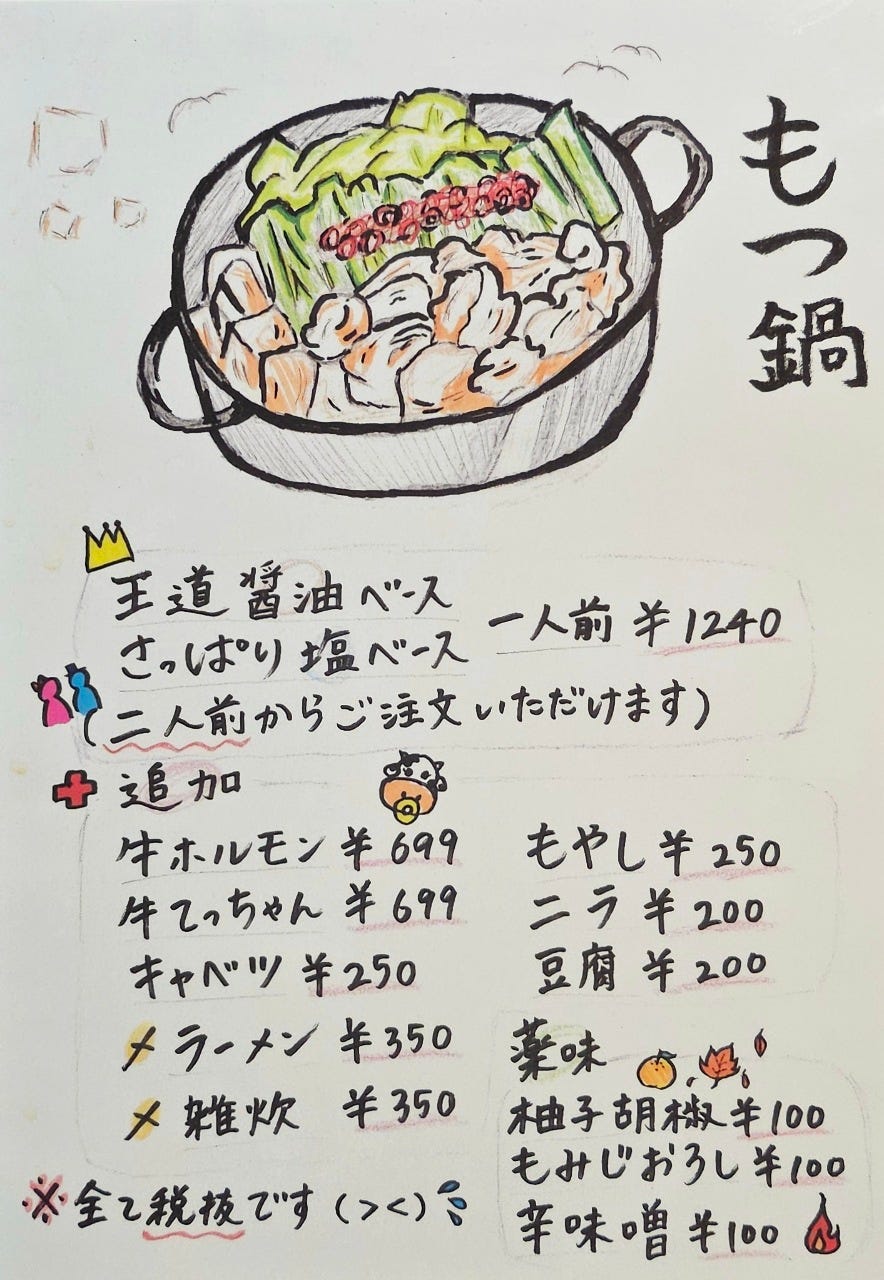 もつ鍋
王道 醤油ベース
さっぱり 塩ベース
一人前 ¥1240
(二人前からご注文いただけます)
追加
牛ホルモン ¥699
牛てっちゃん ¥699
キャベツ ¥250
〆ラーメン ¥350
〆 雑炊 ¥350
もやし ¥250
ニラ ¥200
豆腐 ¥200
薬味
柚子胡椒 ¥100
もみじおろし ¥100
辛味噌 ¥100
※全て税抜です(><)